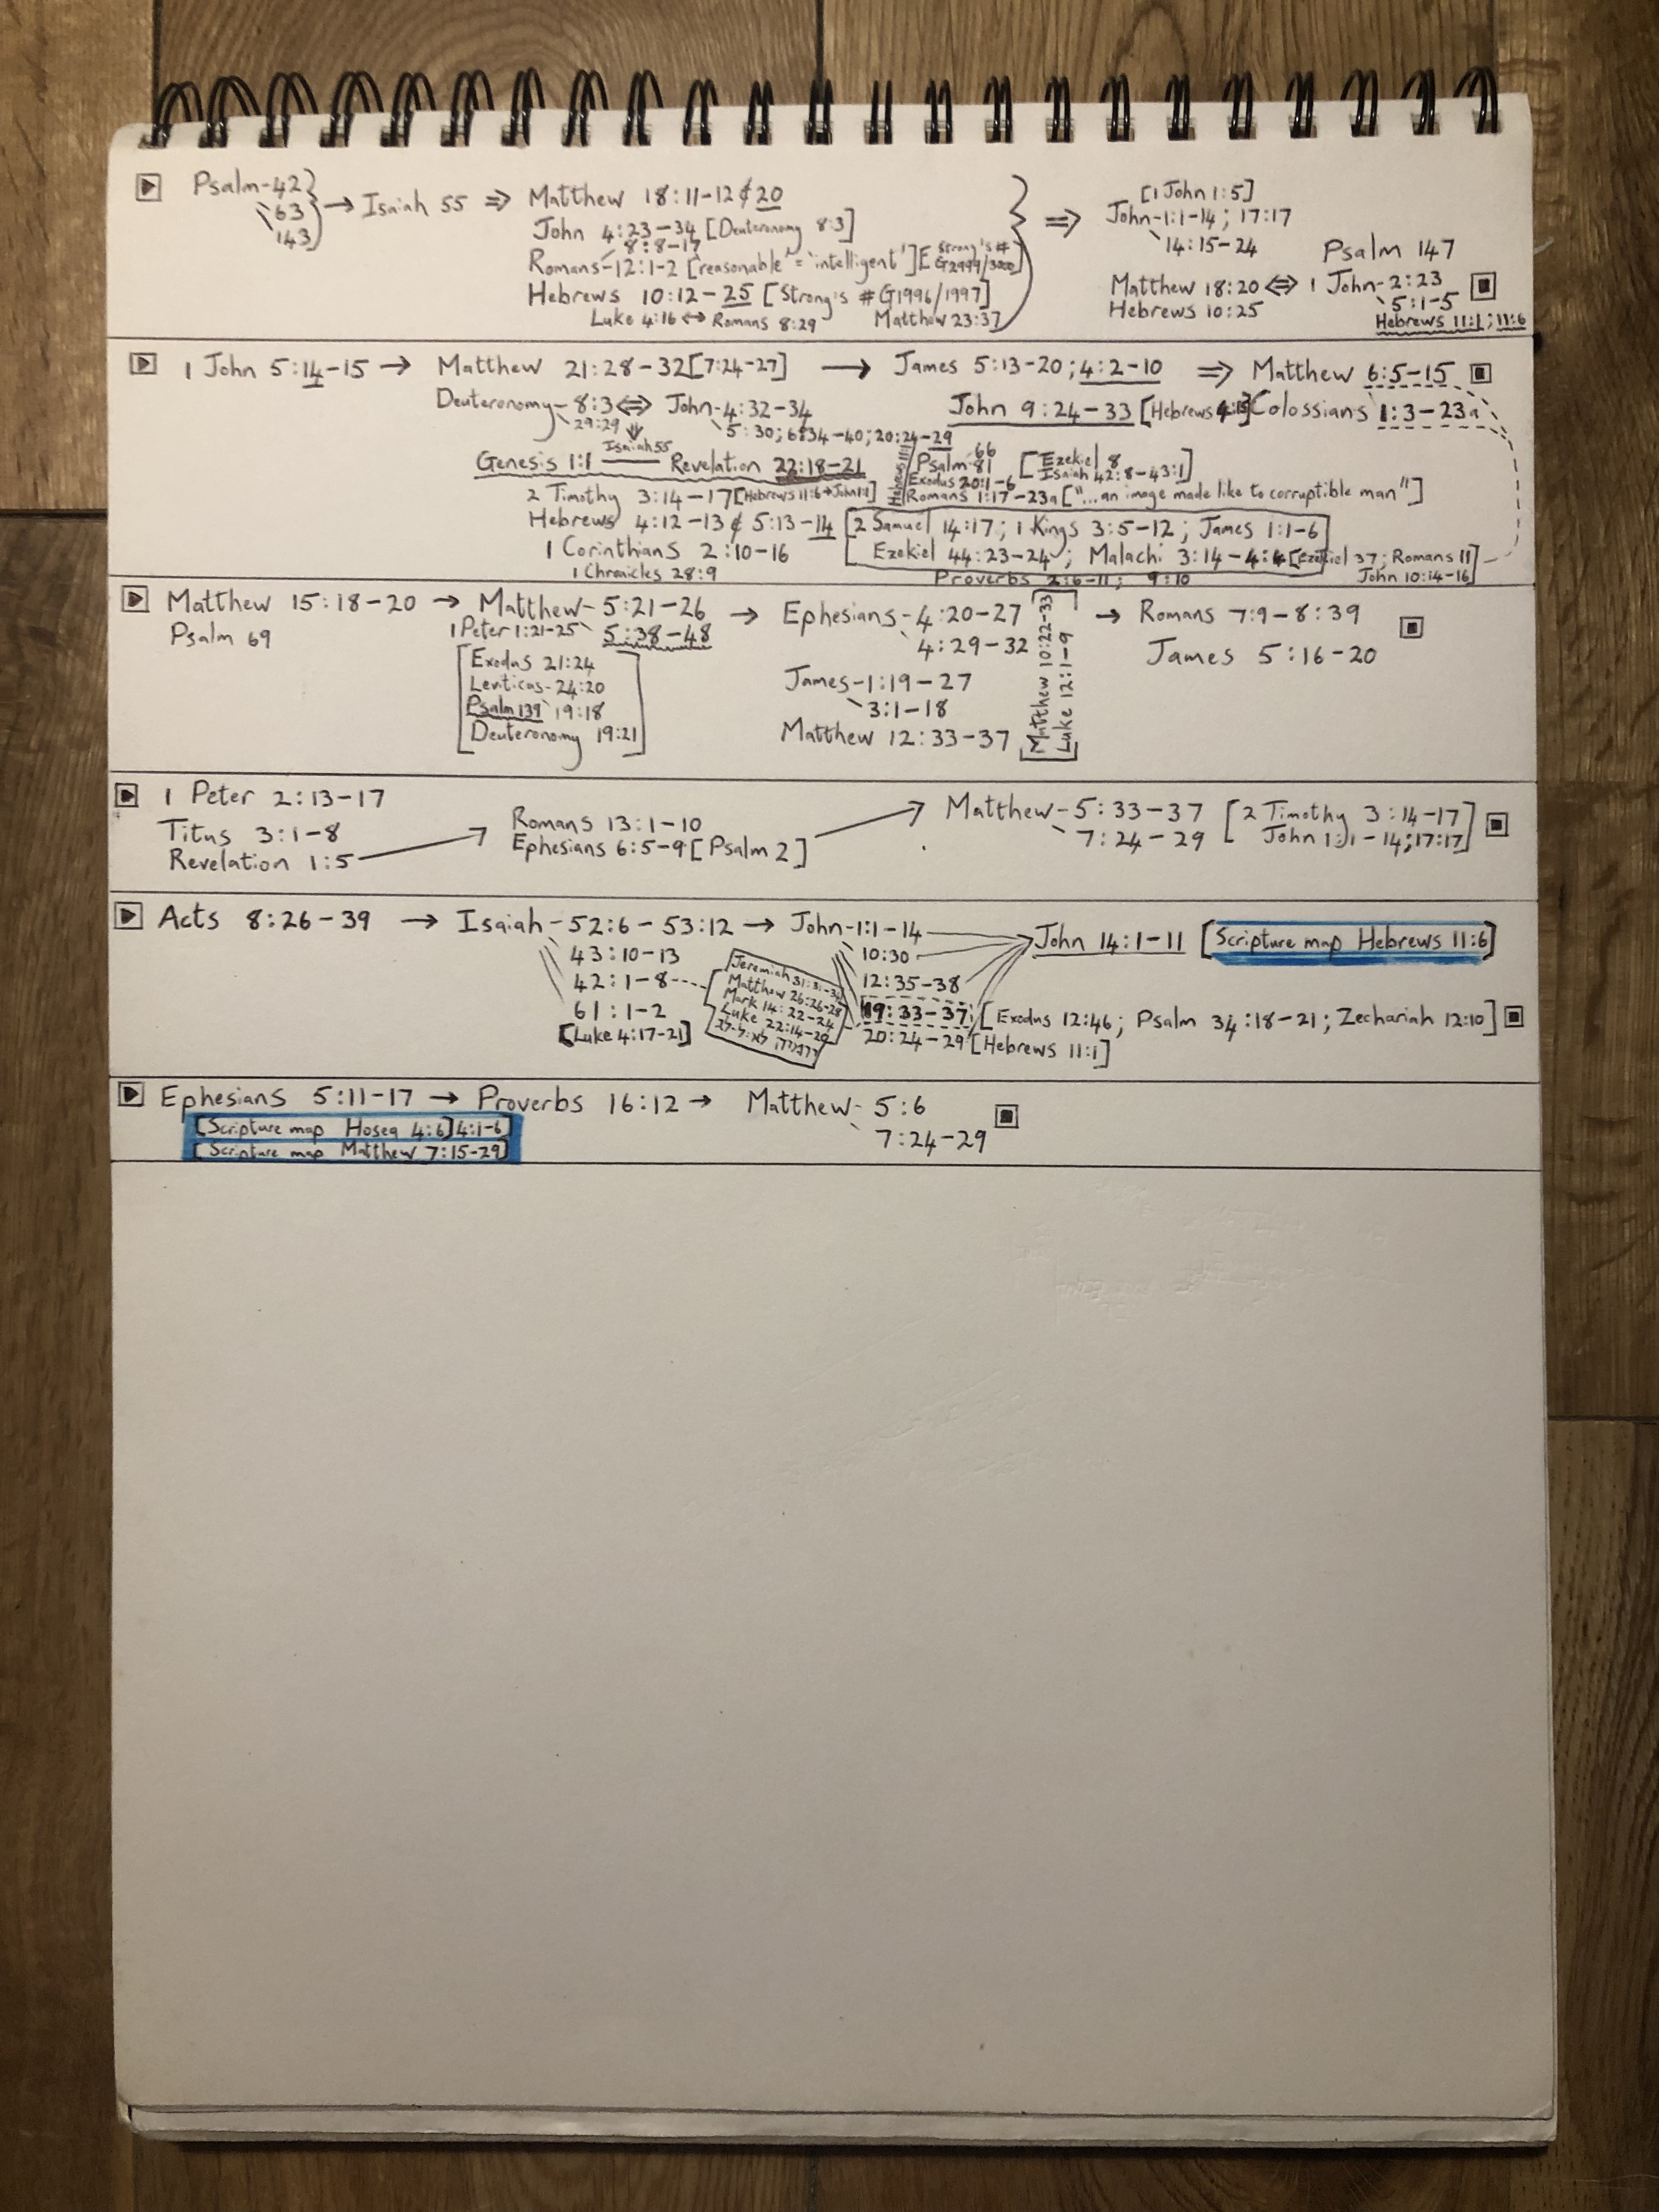 Psalm-42} → Isaiah 55 ⇒ Matthew 18:11-12 & 20
63
143
John 4:23-34 [Deuteronomy 8:3]
8:8-17
Romans-12:1-2 [reasonable' = 'intelligent'] [Strong's #
Hebrews 10:12-25 [Strong's #G1996/1997]
Luke 4:16 ↔ Romans 8:29 Matthew 23:37
⇒ [1 John 1:5]
John-1:1-14; 17:17
14:15-24
Psalm 147
Matthew 18:20 ⇔ 1 John-2:23
Hebrews 10:25 5:1-5
Hebrews 11:1; 11:6
1 John 5:14-15 → Matthew 21:28-32 [7:24-27] → James 5:13-20; 4:2-10 ⇒ Matthew 6:5-15
Deuteronomy-8:3 ⇔ John-4:32-34 John 9:24-33 [Hebrews Colossians 1:3-23a
29:29 5:30; 6:34-40; 20:24-29
Isaiah 55
Genesis 1:1 — Revelation 22:18-21
Hebrews 11:1
Psalm-66
81 [Ezekiel 8
Isaiah 42:8-43:1]
Exodus 20:1-6
Romans 1:17-23a ["...an image made like to corruptible man"]
2 Timothy 3:14-17 [Hebrews 11:6→John 1:1]
Hebrews 4:12-13 & 5:13-14 [2 Samuel 14:17; 1 Kings 3:5-12; James 1:1-6
1 Corinthians 2:10-16 Ezekiel 44:23-24; Malachi 3:14-4:4 [Ezekiel 37; Romans 11]
1 Chronicles 28:9 Proverbs 2:6-11; 9:10 John 10:14-16]
Matthew 15:18-20 → Matthew-5:21-26 → Ephesians-4:20-27 → Romans 7:9-8:39
Psalm 69 1 Peter 1:21-25 5:38-48 4:29-32 James 5:16-20
[Exodus 21:24
Leviticus-24:20
Psalm 139 19:18
Deuteronomy 19:21]
James-1:19-27
3:1-18
Matthew 12:33-37
[Matthew 10:22-33
Luke 12:1-9]
1 Peter 2:13-17
Titus 3:1-8
Revelation 1:5 → Romans 13:1-10
Ephesians 6:5-9 [Psalm 2] → Matthew-5:33-37 [2 Timothy 3:14-17
7:24-29 John 1:1-14; 17:17]
Acts 8:26-39 → Isaiah-52:6-53:12 → John-1:1-14 John 14:1-11 [Scripture map Hebrews 11:6]
43:10-13 10:30
42:1-8 12:35-38
61:1-2 19:33-37 [Exodus 12:46; Psalm 34:18-21; Zechariah 12:10]
[Luke 4:17-21] 20:24-29 [Hebrews 11:1]
Jeremiah 31:31-34
Matthew 26:26-28
Mark 14:22-24
Luke 22:14-20
Ephesians 5:11-17 → Proverbs 16:12 → Matthew-5:6
[Scripture map Hosea 4:6] 4:1-6] 7:24-29
[Scripture map Matthew 7:15-29]